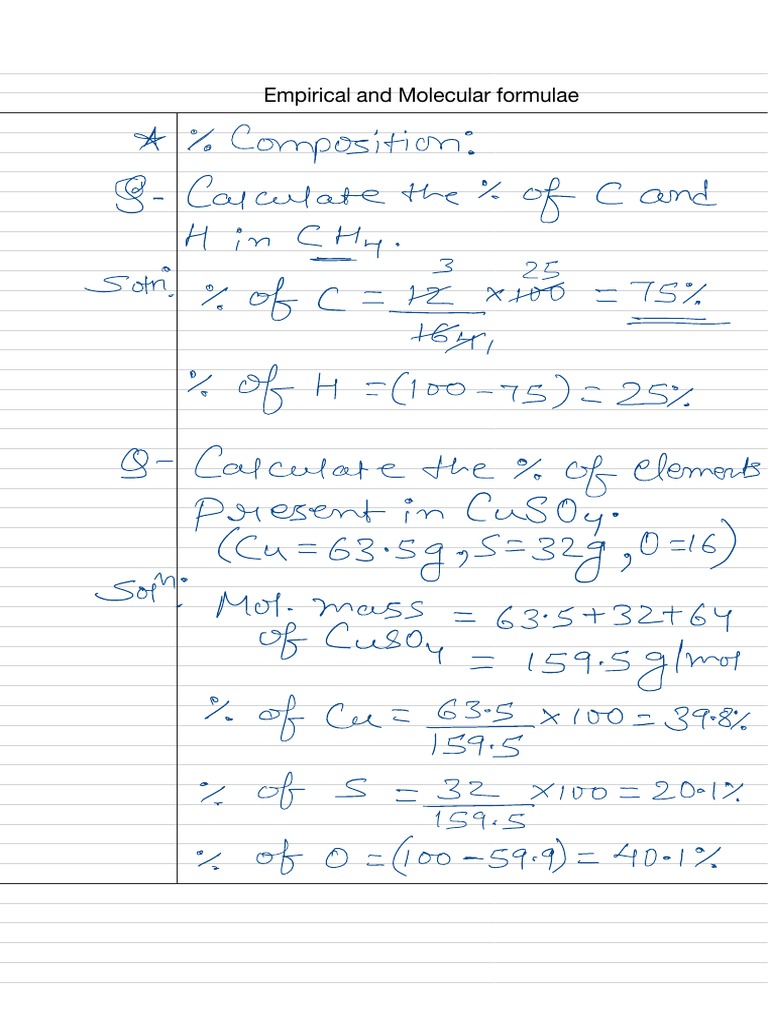 Empirical and Molecular formulae
* % Composition:
Q- Calculate the % of C and
H in CH4.
Soln: % of C = 12/16 × 100 = 75%
3 25
4 1
% of H = (100 - 75) = 25%
Q- Calculate the % of elements
Present in CuSO4.
(Cu = 63.5g, S = 32g, O = 16)
Soln: Mol. mass = 63.5 + 32 + 64
of CuSO4 = 159.5 g/mol
% of Cu = 63.5/159.5 × 100 = 39.8%
% of S = 32/159.5 × 100 = 20.1%
% of O = (100 - 59.9) = 40.1%